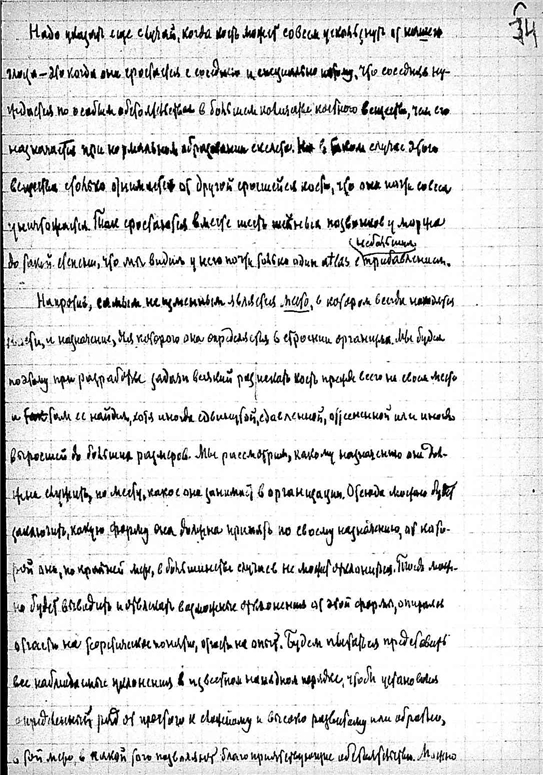 34
Надо указать еще случай, когда кость может совсем ускользнуть от нашего
глаза – это когда она срослась с соседнею и специально потому, что соседняя ну-
ждается по особым обстоятельствам в большем количестве костного вещества, чем ей
назначается при нормальном образовании скелета. Но в таком случае этого
вещества столько отнимается от другой сросшейся кости, что она почти совсем
уничтожается. Так срослись вместе шесть шейных позвонков у моржа
до такой степени, что мы видим у него почти только один atlas с небольшим прибавлением.
Напротив, самым неизменным является место, в котором всегда находится
кость, и назначение, для которого она определяется в строении организма. Мы будем
поэтому при разработке задачи всякий раз искать кость прежде всего на своем месте
и там ее найдем, хотя иногда сдвинутой, сдавленной, оттесненной или иногда
выросшей до больших размеров. Мы рассмотрим, какому назначению она дол-
жна служить, по месту, какое она занимает в организации. Отсюда можно будет
заключить, какую форму она должна принять по своему назначению, от кото-
рой она, по крайней мере, в большинстве случаев не может отклониться. Тогда мож-
но будет выводить и отвлекать возможные отклонения от этой формы, опираясь
отчасти на теоретическое понятие, отчасти на опыт. Будем пытаться представить
все наблюдаемые уклонения в известном наглядном порядке, чтобы установился
определенный ряд от простого к сложному и высоко развитому или обратно,
в той мере, в какой того позволяют благоприятствующие обстоятельства. Можно